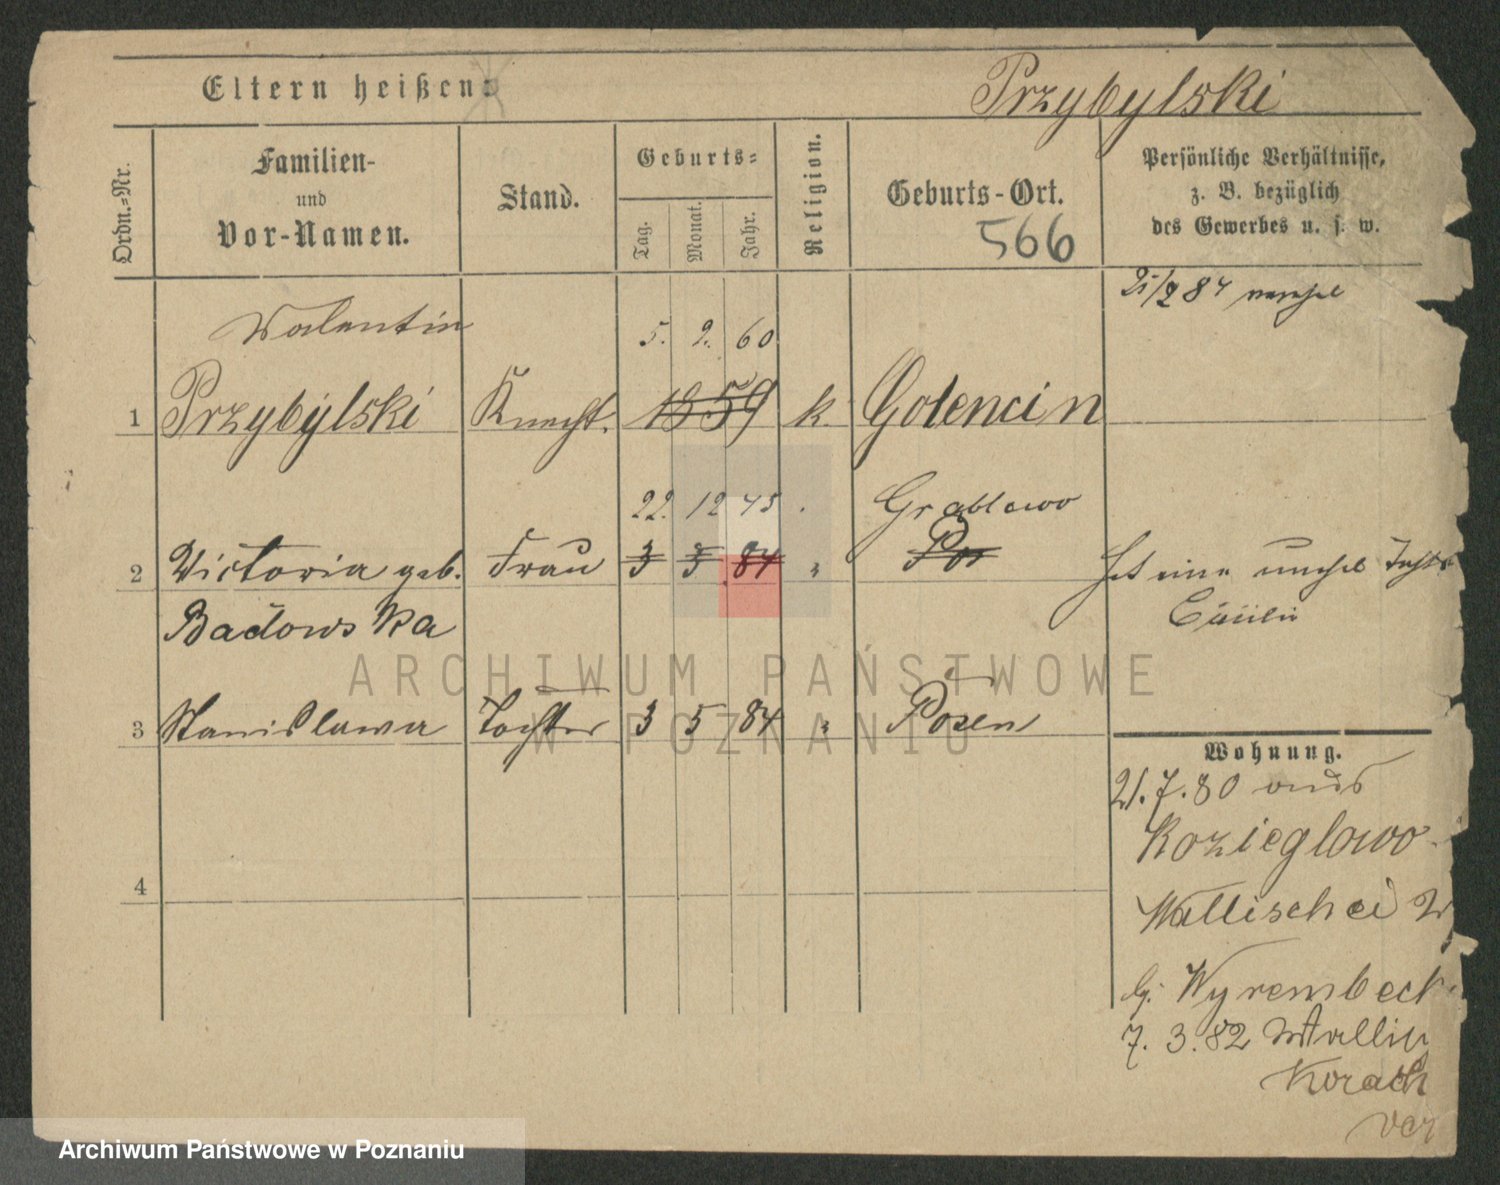 Eltern heißen:
Przybylski
Ordn.-Nr.
Familien-
und
Vor-Namen.
Stand.
Geburts-
Tag.
Monat.
Jahr.
Religion.
Geburts-Ort.
566
Persönliche Verhältnisse,
z. B. bezüglich
des Gewerbes u. s. w.
25/2 84
Valentin 5. 2. 60
1 Przybylski Knecht. 1859 k. Golencin
22. 12 45 Grablowo
2 Victoria geb. Frau 3 5 84 " Pos
Badowska
Hat eine unehel Tocht
Cäcilie
3 Stanislawa Tochter 3 5 84 " Posen
4
Wohnung.
21.7.80 aus
Kozieglowo
Wallischei 2
bj. Wyrembeck
7. 3. 82 Wallis
Korach
ver
ARCHIWUM PAŃSTWOWE
W POZNANIU
Archiwum Państwowe w Poznaniu